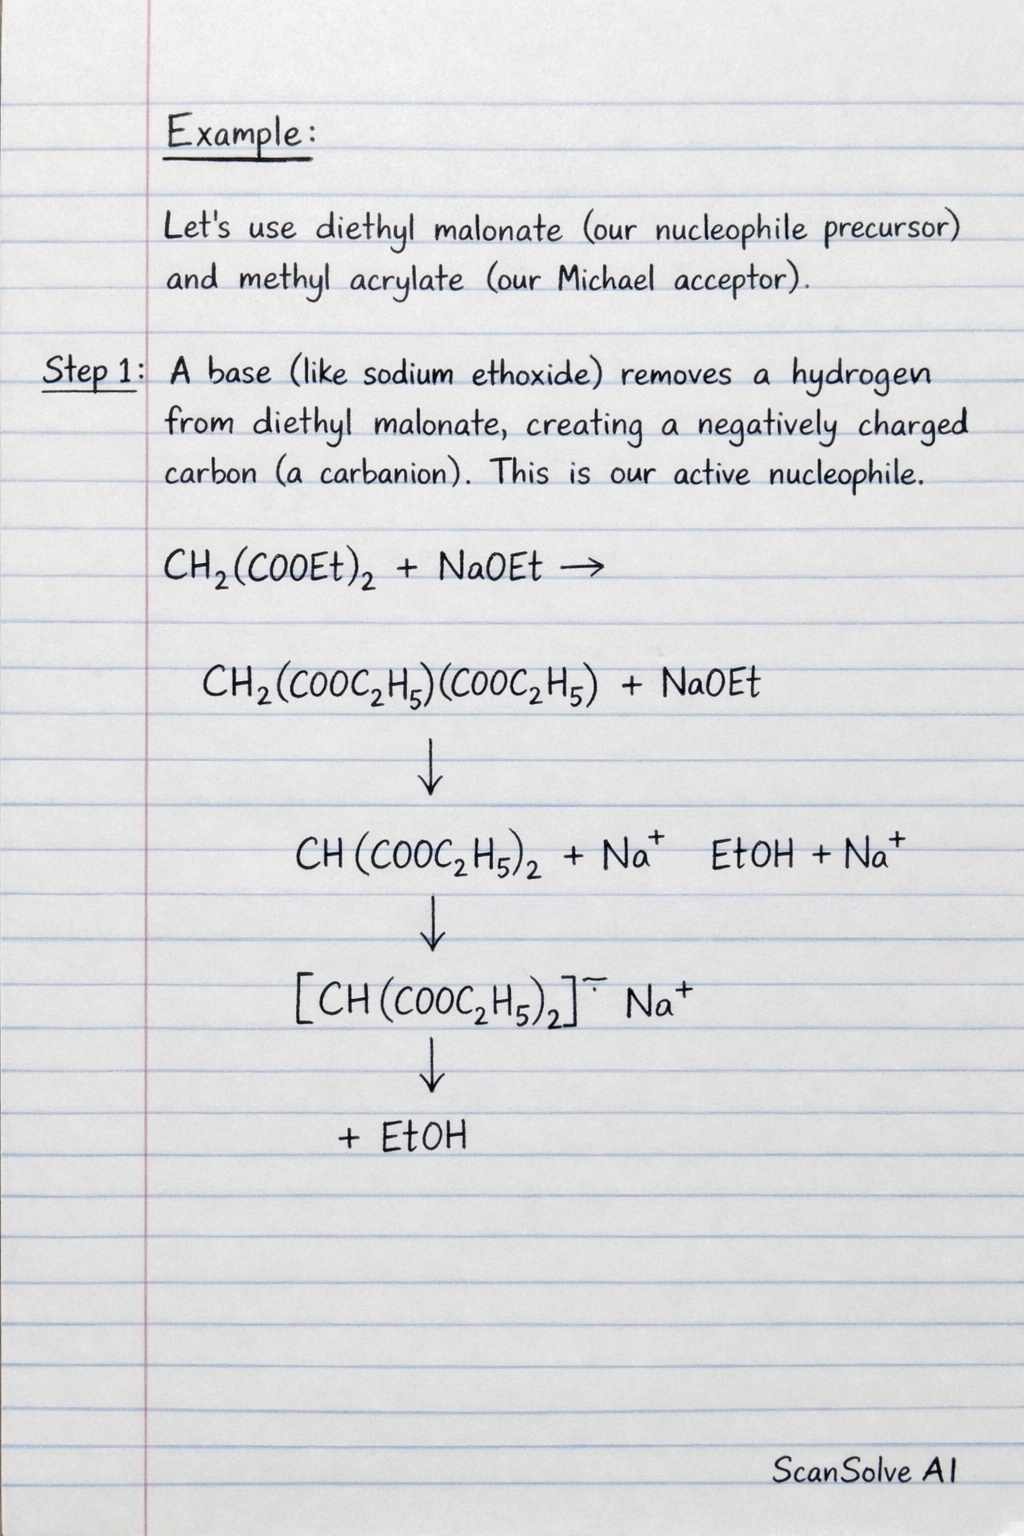 Example:
Let's use diethyl malonate (our nucleophile precursor)
and methyl acrylate (our Michael acceptor).
Step 1: A base (like sodium ethoxide) removes a hydrogen
from diethyl malonate, creating a negatively charged
carbon (a carbanion). This is our active nucleophile.
CH₂(COOEt)₂ + NaOEt →
CH₂(COOC₂H₅)(COOC₂H₅) + NaOEt
↓
CH(COOC₂H₅)₂ + Na⁺ EtOH + Na⁺
↓
[CH(COOC₂H₅)₂]⁻̣ Na⁺
↓
+ EtOH
ScanSolve AI